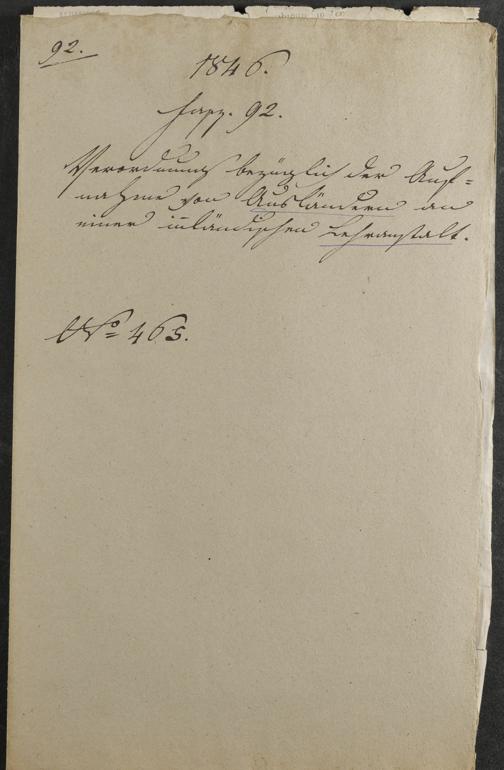 92.
1846.
Fasz. 92.
Verordnung bezüglich der Auf=
nahme von Ausländern an
einer inländischen Lehranstalt.
No 465.